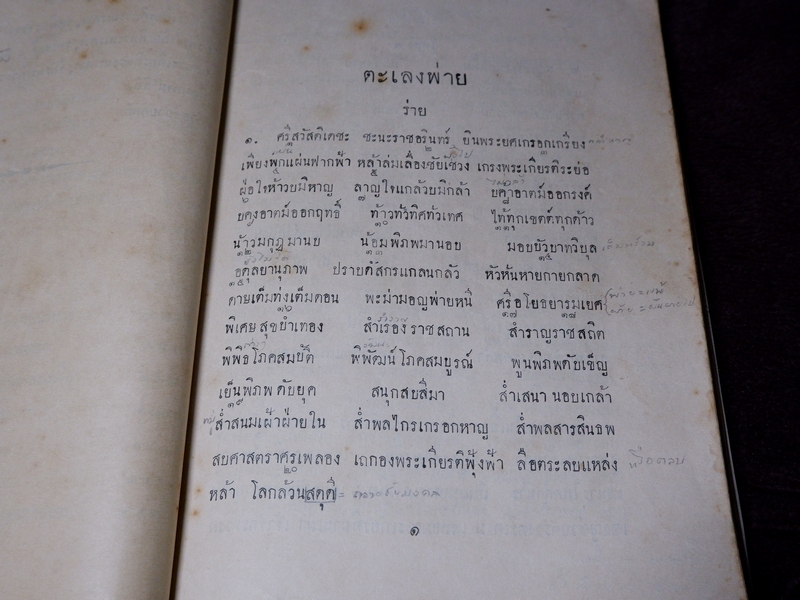 ตะเลงพ่าย
ร่าย
๑. ศรีสวัสดิเดชะ ชะนะราชอรินทร์ ยินพระยศเกรอกเกรียง
เพียงพกแผ่นฟากฟ้า หล้าล่มเลื่องชัยเชวง เกรงพระเกียรติระย่อ
ฝ่อใจห้าวบมิหาญ ลาญใจแกล้วบมิกล้า บค้าอาตม์ออกรงค์
บคงอาตม์ออกฤทธิ์ ท้าวทั่วทิศทั่วเทศ ไท้ทุกเขตต์ทุกด้าว
น้าวมกุฎมานบ น้อมพิภพมานอบ มอบบัวบาทวิบุล
อดุลยานุภาพ ปราบดัสกรแกลนกลัว หัวหั่นหายกายกลาด
ดาษเต็มท่งเต็มดอน พะม่ามอญพ่ายหนี ศรีอโยธยารมเยศ
พิเศษสุขบำเทอง สำเริงราชสถาน สำราญราชสถิต
พิพิธโภคสมบัติ พิพัฒน์โภคสมบูรณ์ พูนพิภพดับเข็ญ
เย็นพิภพดับยุค สนุกสบสีมา ส่ำเสนานอบเกล้า
ส่ำสนมเฝ้าฝ่ายใน ส่ำพลไกรเกรอกหาญ ส่ำพลสารสินธพ
สบศาสตราศรเพลอง เถกองพระเกียรติฟุ้งฟ้า ลือตระลบแหล่ง
หล้า โลกล้วนสดุดี
๑